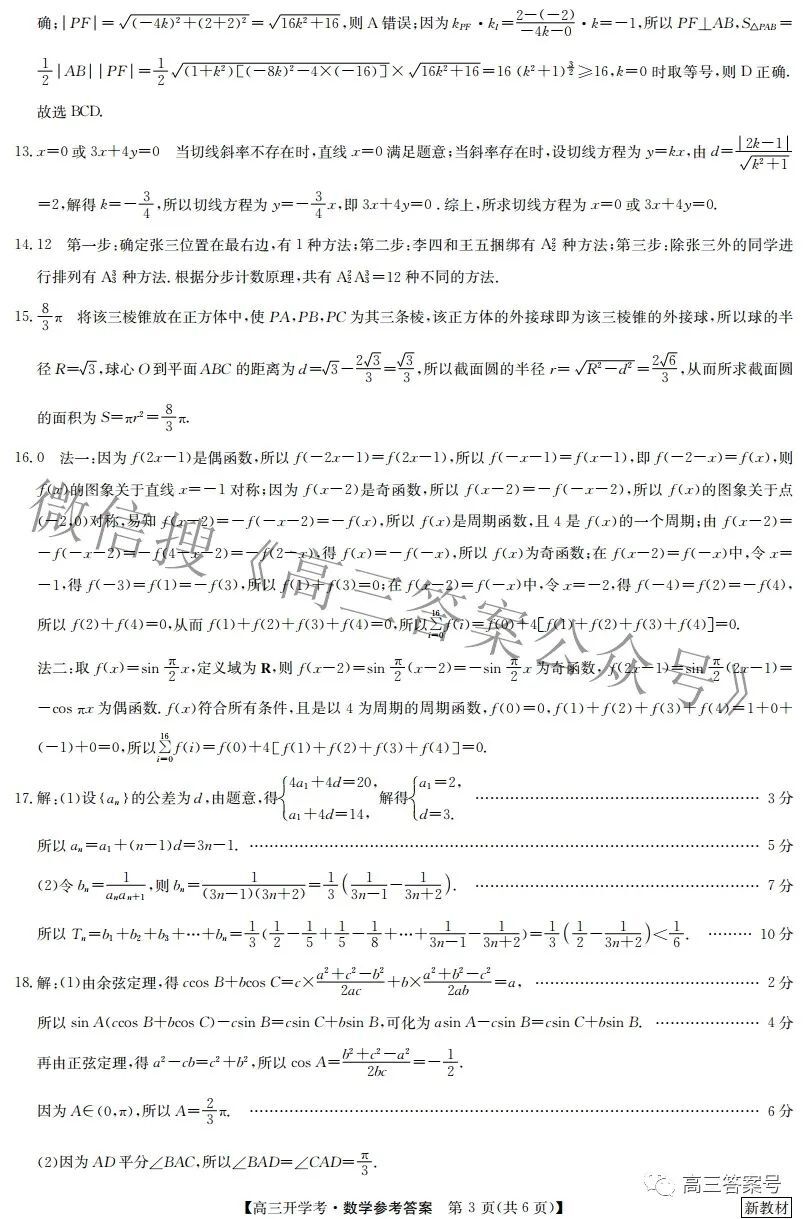 确;|PF|=√((-4k)²+(2+2)²)=√(16k²+16),则 A 错误;因为 k_PF·k_l=(2-(-2))/(-4k-0)·k=-1,所以 PF⊥AB,S△PAB=
1/2|AB||PF|=1/2√((1+k²)[(-8k)²-4×(-16)])×√(16k²+16)=16(k²+1)^(3/2)≥16,k=0 时取等号,则 D 正确.
故选 BCD.
13. x=0 或 3x+4y=0 当切线斜率不存在时,直线 x=0 满足题意;当斜率存在时,设切线方程为 y=kx,由 d=|2k-1|/√(k²+1)
=2,解得 k=-3/4,所以切线方程为 y=-3/4x,即 3x+4y=0.综上,所求切线方程为 x=0 或 3x+4y=0.
14. 12 第一步:确定张三位置在最右边,有 1 种方法;第二步:李四和王五捆绑有 A₂² 种方法;第三步:除张三外的同学进
行排列有 A₃³ 种方法.根据分步计数原理,共有 A₂²A₃³=12 种不同的方法.
15. 8/3π 将该三棱锥放在正方体中,使 PA,PB,PC 为其三条棱,该正方体的外接球即为该三棱锥的外接球,所以球的半
径 R=√3,球心 O 到平面 ABC 的距离为 d=√3-2√3/3=√3/3,所以截面圆的半径 r=√(R²-d²)=2√6/3,从而所求截面圆
的面积为 S=πr²=8/3π.
16. 0 法一:因为 f(2x-1)是偶函数,所以 f(-2x-1)=f(2x-1),所以 f(-x-1)=f(x-1),即 f(-2-x)=f(x),则
f(x)的图象关于直线 x=-1 对称;因为 f(x-2)是奇函数,所以 f(x-2)=-f(-x-2),所以 f(x)的图象关于点
(-2,0)对称,易知 f(x-2)=-f(-x-2)=-f(x),所以 f(x)是周期函数,且 4 是 f(x)的一个周期;由 f(x-2)=
-f(-x-2)=-f(4-x-2)=-f(2-x),得 f(x)=-f(-x),所以 f(x)为奇函数;在 f(x-2)=f(-x)中,令 x=
-1,得 f(-3)=f(1)=-f(3),所以 f(1)+f(3)=0;在 f(x-2)=f(-x)中,令 x=-2,得 f(-4)=f(2)=-f(4),
所以 f(2)+f(4)=0,从而 f(1)+f(2)+f(3)+f(4)=0,所以∑(i=0→16)f(i)=f(0)+4[f(1)+f(2)+f(3)+f(4)]=0.
法二:取 f(x)=sin π/2 x,定义域为 R,则 f(x-2)=sin π/2(x-2)=-sin π/2 x 为奇函数,f(2x-1)=sin π/2(2x-1)=
-cos πx 为偶函数.f(x)符合所有条件,且是以 4 为周期的周期函数,f(0)=0,f(1)+f(2)+f(3)+f(4)=1+0+
(-1)+0=0,所以∑(i=0→16)f(i)=f(0)+4[f(1)+f(2)+f(3)+f(4)]=0.
17. 解:(1)设{aₙ}的公差为 d,由题意,得{4a₁+4d=20, a₁+4d=14, 解得{a₁=2, d=3. …… 3 分
所以 aₙ=a₁+(n-1)d=3n-1. …… 5 分
(2)令 bₙ=1/(aₙaₙ₊₁),则 bₙ=1/((3n-1)(3n+2))=1/3(1/(3n-1)-1/(3n+2)). …… 7 分
所以 Tₙ=b₁+b₂+b₃+…+bₙ=1/3(1/2-1/5+1/5-1/8+…+1/(3n-1)-1/(3n+2))=1/3(1/2-1/(3n+2))<1/6. …… 10 分
18. 解:(1)由余弦定理,得 ccos B+bcos C=c×(a²+c²-b²)/2ac+b×(a²+b²-c²)/2ab=a, …… 2 分
所以 sin A(ccos B+bcos C)-csin B=csin C+bsin B,可化为 asin A-csin B=csin C+bsin B. …… 4 分
再由正弦定理,得 a²-cb=c²+b²,所以 cos A=(b²+c²-a²)/2bc=-1/2.
因为 A∈(0,π),所以 A=2/3π. …… 6 分
(2)因为 AD 平分∠BAC,所以∠BAD=∠CAD=π/3.
微信搜《高三答案公众号》
高三答案号
【高三开学考·数学参考答案 第 3 页(共 6 页)】 新教材